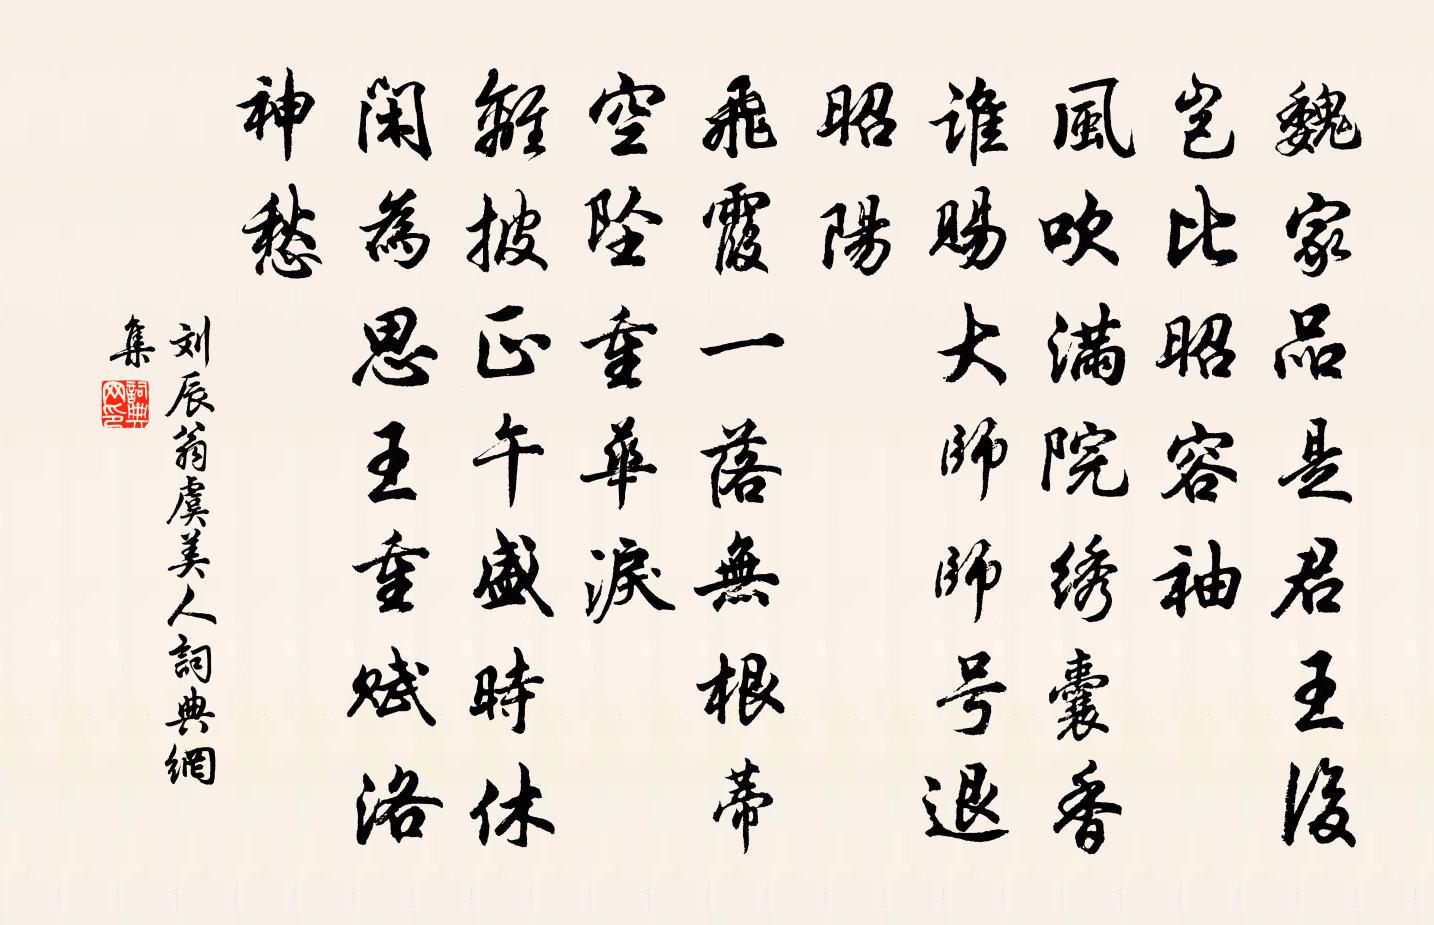 魏家品是君王後
岂比昭容袖
風吹滿院绣囊香
誰賜大師師号退
昭陽
飛霞一落無根蒂
空坠重華淚
難披正午盛時休
閑為思王重赋洛
神愁
刘辰翁虞美人詞典網
集
詞典网印